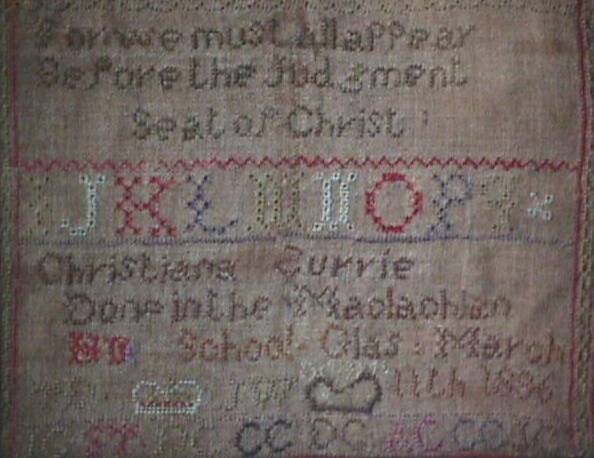 For we must All appear
Before the Judgment
Seat of Christ :
J K L M N O P Q
Christiana Currie
Done in the Maclachlan
School Glas : March
11th 1836
CC DC AC CC